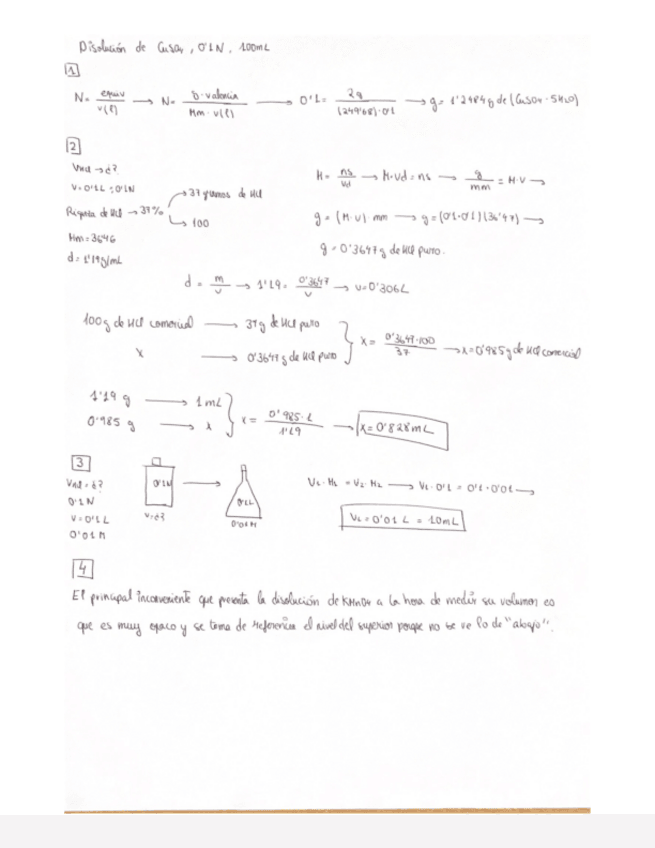 Disolución de CuSO4, 0'1N, 100mL
1
N= equiv / v(l) → N= g·valencia / Mm·v(l) → 0'1= 2g / (249'68)·0'1 → g= 1'2484g de (CuSO4·5H2O)
2
Vnd → ¿?
V=0'1L ; 0'1N
Riqueza de HCl → 37%
→ 37 gramos de HCl
→ 100
Mm=36'46
d=1'19g/mL
M= ns / Vd → M·Vd=ns → g / mm = M·V →
g=(M·V) mm → g=(0'1·0'1)(36'47) →
g=0'3647g de HCl puro.
d= m / v → 1'19= 0'3647 / v → v=0'306L
100g de HCl comercial → 37g de HCl puro
x → 0'3647g de HCl puro
x= 0'3647·100 / 37 → x=0'985g de HCl comercial
1'19 g → 1mL
0'985 g → x
x= 0'985·1 / 1'19 → x=0'828mL
3
Vnd=¿?
0'1N
V=0'1L
0'01M
0'1N
V=¿?
0'1L
0'01M
V1·M1=V2·M2 → V1·0'1=0'1·0'01 →
V1=0'01 L = 10mL
4
El principal inconveniente que presenta la disolución de KMnO4 a la hora de medir su volumen es
que es muy opaco y se toma de referencia el nivel del superior porque no se ve lo de "abajo".